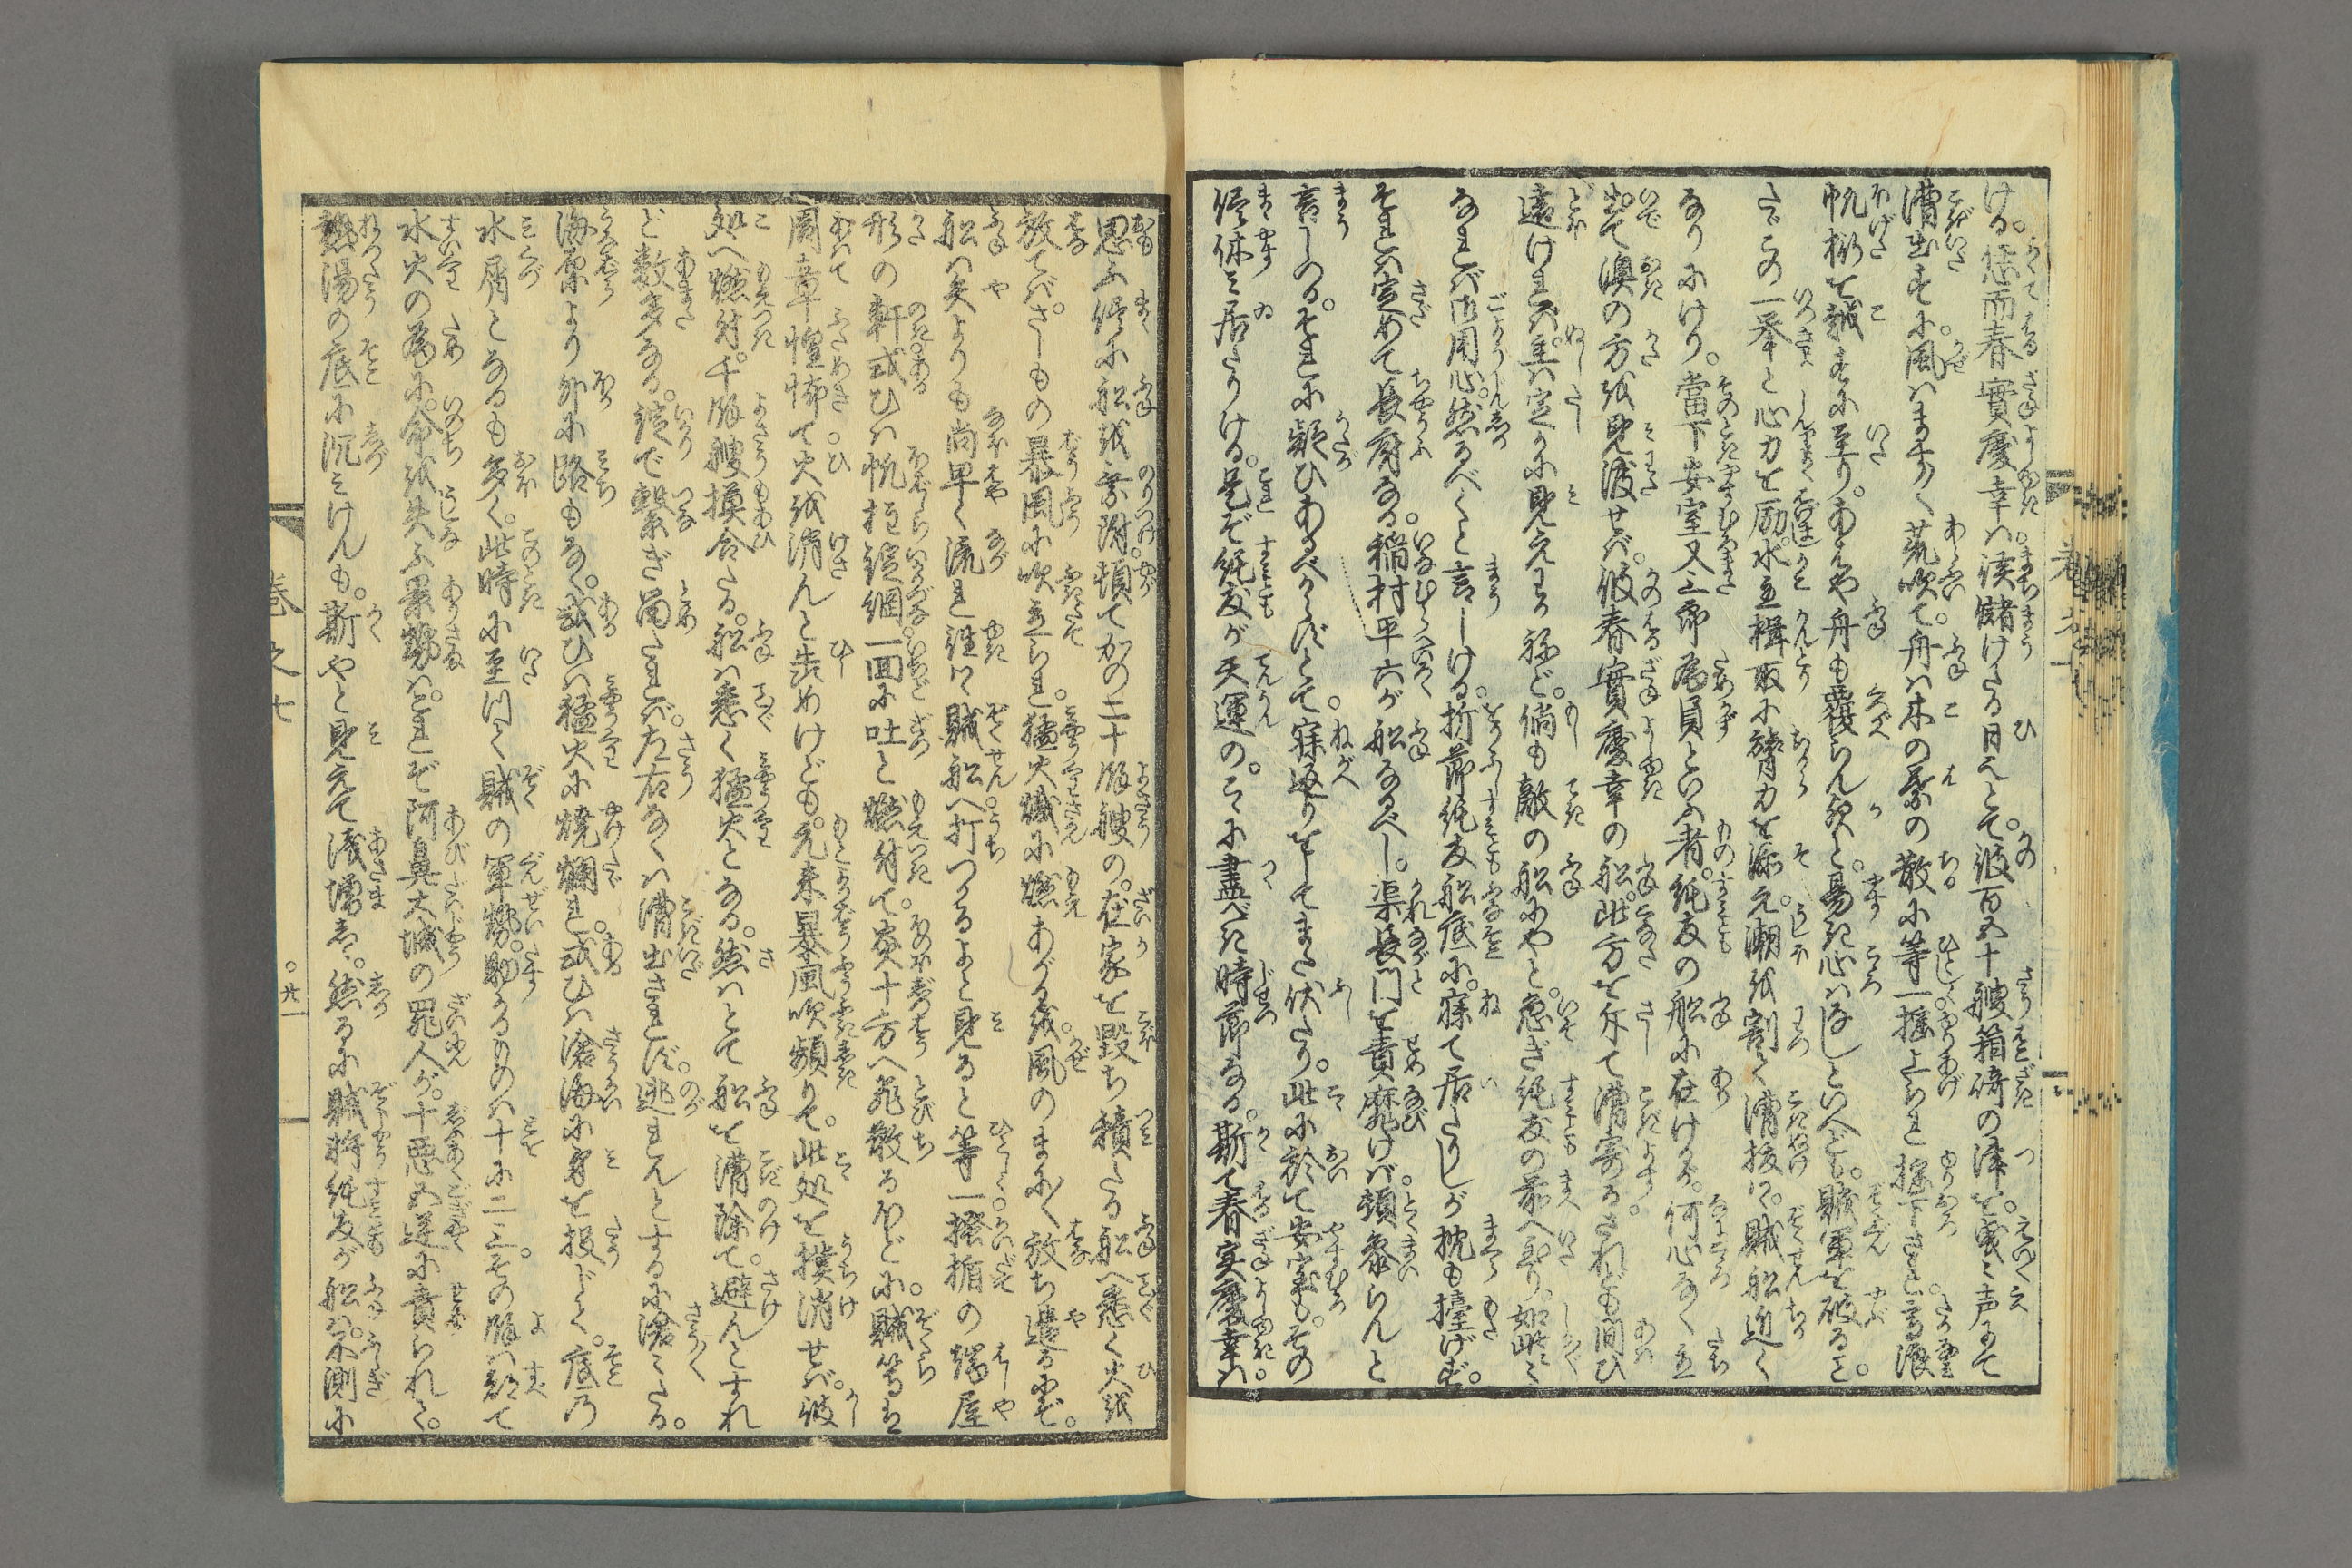 ける。恁而春實慶幸ハ。待儲けたる日也とて。彼百五十艘箱﨑の津を。曵々声にて
漕出すに。風ハます〳〵荒吹て。舟ハ木の葉の散に等一揺上られ揺下され。高浪
帆桁を越すに至り。あハや舟も覆らん歟と。易き心ハなしといへども。賊軍を破るを。
たゞこの一挙と心力を励。水主楫取に膂力を添え。潮を割て漕抜け。賊船近く
なりにけり。當下安室又三郎為員といふ者。純友の船に在けるが。何心なく立
出て澳の方を見渡せバ。彼春實慶幸の船。此方を斥て漕寄る。されども間ひ
遠けれバ主ハ定かに見えわかねど。倘も敵の船にやと。急ぎ純友の前へ至り。如此々々
なれバ御用心。然るべくと言しける。折節純友船底に。寐て居たりしが枕も擡げず。
それハ定めて長府なる。稲村平六が船なるべし。渠長門を責靡けバ。頓参らんと
言しつる。それに疑ひあるべからずとて。寐返りをしてまた伏たり。此に於て安室も。その
侭休み居たりける。是ぞ純友が天運の。こゝに盡べき時節なる。斯て春実慶幸ハ。
思ふ侭に船を乗附。頓てかの二十餘艘の。在家を毀ち積たる船へ悉く火を
放てバ。さしもの暴風に吹立られ。猛火熾に燃あがるを。風のまに〳〵放ち遣るにぞ。
船ハ矢よりも尚早く流れ往て。賊船へ打つくるよと見ると等一。掻楯の端屋
形の軒或ひハ帆柱碇綱一囬に吐と燃付て。炎十方へ飛散るほどに。賊等ハ
周章惶怖て火を消んと噪めけども。元来暴風吹頻りて。此処を撲消せバ。彼
処へ燃付。千餘艘摸合たる。船ハ悉く猛火となる。然ハとて船を漕除て。避んとすれ
ど数多なる。碇で繋ぎ留たれバ。左右なくハ漕出されず。逃れんとするに滄々たる。
海原より外に路もなく。或ひハ猛火に焼爛れ。或ひハ滄海に身を投じて。底乃
水屑となるも多く。此時に至つて賊の軍勢。助かるものハ十に二三。その餘ハ都て
水火の為に。命を失ふ景勢ハ。これぞ阿鼻大城の罪人が。十悪五逆に責られて。
熱湯の底に沉みけんも。斯やと見えて浅増き。然るに賊将純友が船ハ。不測に
巻之七
○廿一